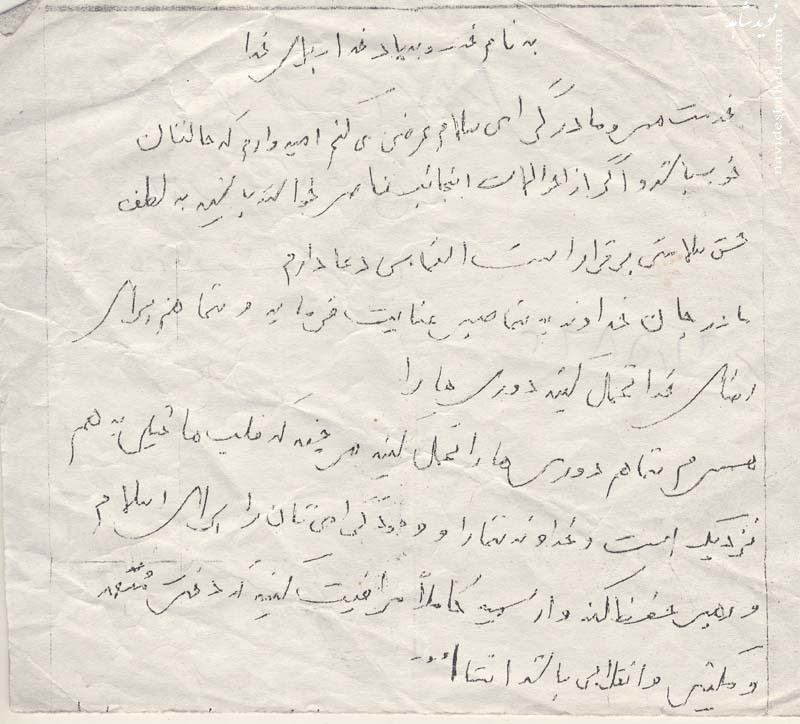 به نام خدا و به یاد خدا برای خدا
خدمت همسر و مادر گرامی سلام عرض می کنم امیدوارم که حالتان
خوب باشد و اگر از احوالات اینجانب ناصر خواسته باشید به لطف
حق سلامتی برقرار است التماس دعا دارم
مادر جان خداوند به شما صبر عنایت فرماید و شما هم برای
رضای خدا تحمل کنید دوری ها را
همسرم شما هم دوری ها را تحمل کنید هر چند که قلب ما خیلی به هم
نزدیک است و خداوند شما را و وجود گرامی تان را برای اسلام
و رهبر حفظ کند و از کاملاً مراقبت کنید که دختر متعهد
و مکتبی و انقلابی باشد انشاا...
نوید شاهد
navideshahed.com